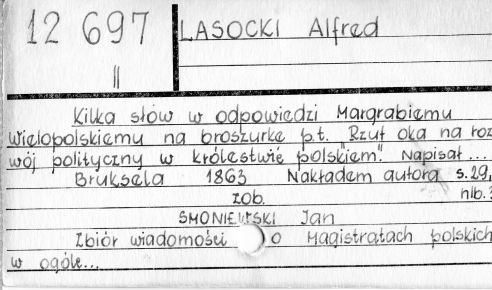 12 697
II
LASOCKI Alfred
Kilka słów w odpowiedzi Margrabiemu
Wielopolskiemu na broszurkę p.t. "Rzut oka na roz
wój polityczny w królestwie polskiem." Napisał ....
Bruksela 1863 Nakładem autora s.29,
zob. nlb.
SMONIEWSKI Jan
Zbiór wiadomości o Magistratach polskich
w ogóle...